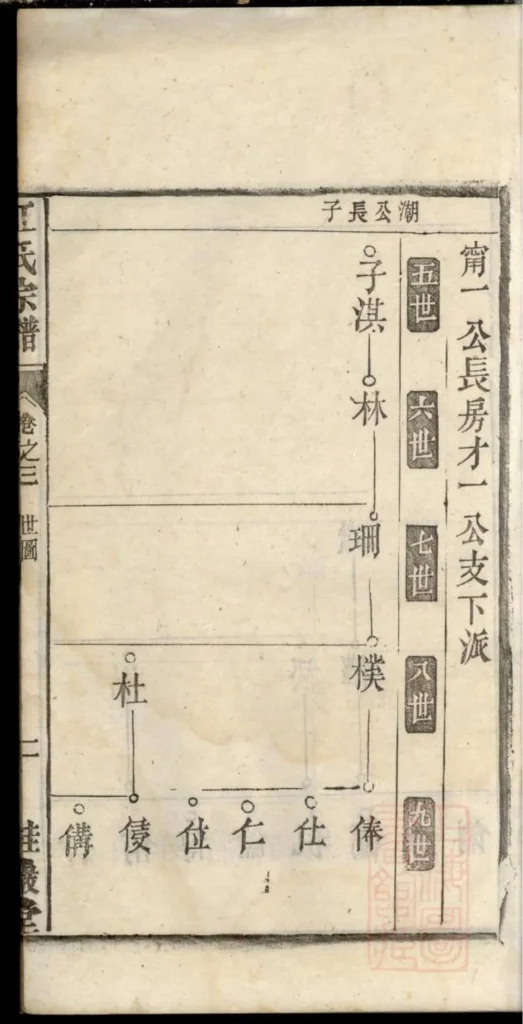 甯一公長房才一公支下派
潮公長子
五世
六世
七世
八世
九世
子淇
林
珊
樸
杜
俸
仕
仁
位
㑄
備
氏宗譜
卷之三
世圖
二
桂嚴堂